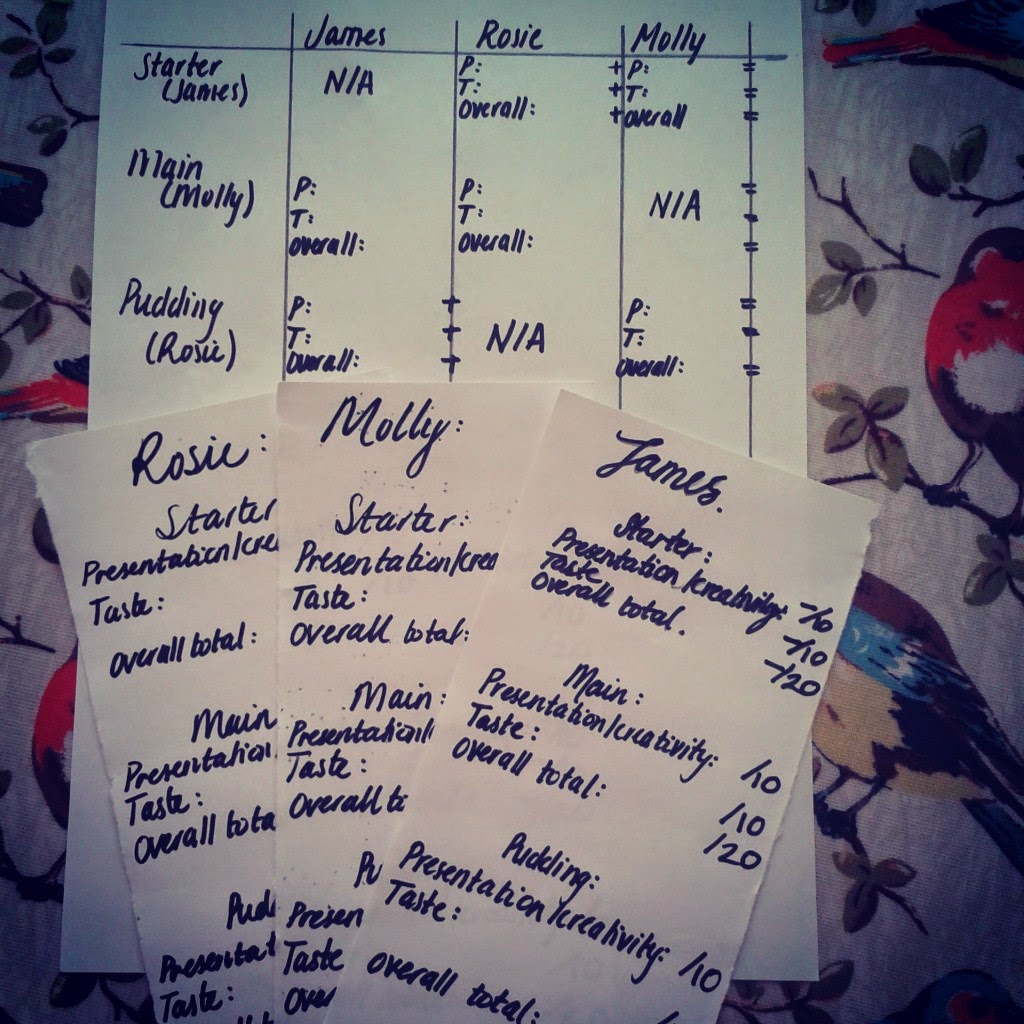 James Rosie Molly
Starter (James) N/A P: + P: =
T: + T: =
overall: + overall =
Main (Molly) P: P: N/A =
T: T: =
overall: overall: =
Pudding (Rosie) P: + N/A P: =
T: + T: =
overall: + overall: =
Rosie:
Starter
Presentation/crea
Taste:
overall total:
Main
Presentation
Taste:
overall tota
Pudd
Presentat
Taste:
Molly:
Starter:
Presentation/crea
Taste:
overall total:
Main:
Presentation/
Taste:
overall to
Pu
Presen
Taste
over
James.
Starter:
Presentation/creativity: -/10
Taste -/10
overall total. -/20
Main:
Presentation/creativity: /10
Taste: /10
overall total: /20
Pudding:
Presentation/creativity: /10
Taste:
overall total: